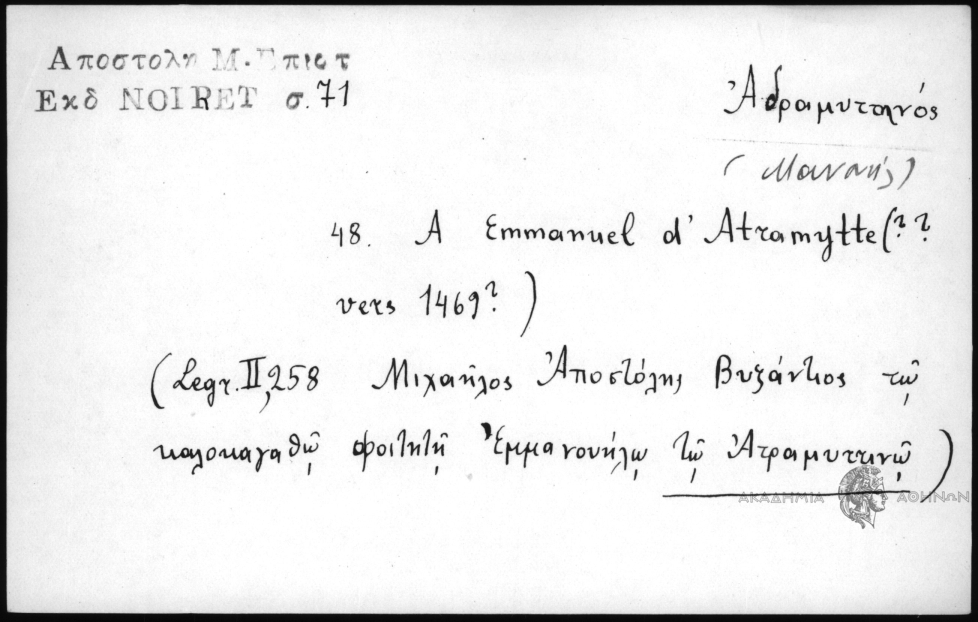 Αποστολη Μ. Επιστ
Εκδ NOIRET σ. 71
Ἀδραμυτηνός
(Μανουής)
48. A Emmanuel d' Atramytte (??
vers 1469?)
(Legr. II, 258 Μιχαῆλος Ἀποστόλης Βυζάντιος τῷ
καλοκαγαθῷ φοιτητῇ Ἐμμανουήλῳ τῷ Ἀτραμυττινῷ)
ΑΚΑΔΗΜΙΑ ΑΘΗΝΩΝ